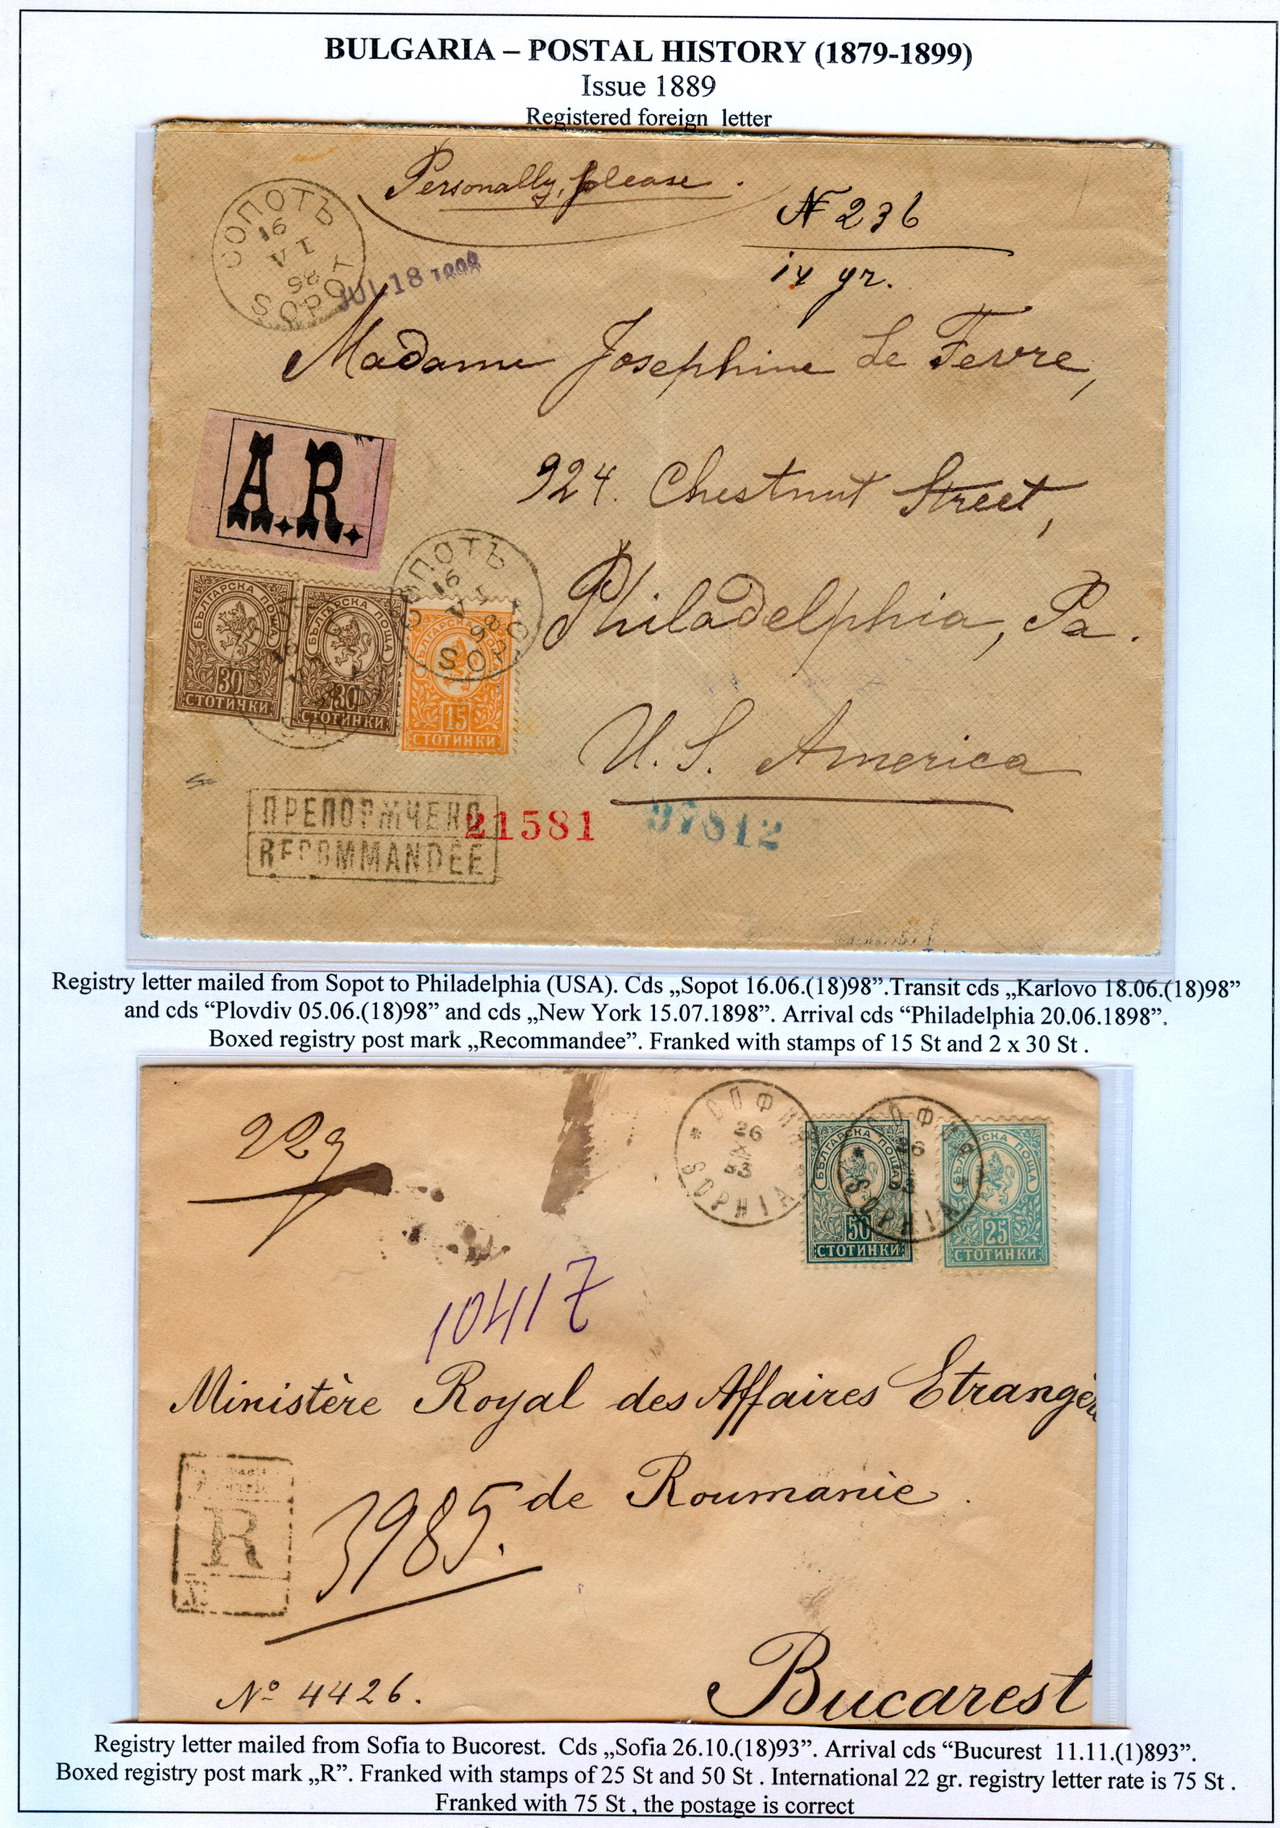 BULGARIA – POSTAL HISTORY (1879-1899)
Issue 1889
Registered foreign letter
Personally, please.
СОПОТЪ
16
VI
98
SOPOT
N 236
14 gr.
JUL 18 1898
Madame Josephine Le Fevre,
A.R.
924. Chestnut Street,
СОПОТЪ
16
VI
98
SO
Philadelphia, Pa.
БЪЛГАРСКА ПОЩА
30
СТОТИНКИ
БЪЛГАРСКА ПОЩА
30
СТОТИНКИ
15
СТОТИНКИ
U. S. America
ПРЕПОРѪЧЕНО
RECOMMANDÉE
21581
97812
Registry letter mailed from Sopot to Philadelphia (USA). Cds „Sopot 16.06.(18)98”.Transit cds „Karlovo 18.06.(18)98”
and cds “Plovdiv 05.06.(18)98” and cds „New York 15.07.1898”. Arrival cds “Philadelphia 20.06.1898”.
Boxed registry post mark „Recommandee”. Franked with stamps of 15 St and 2 x 30 St .
22g
СОФИЯ
26
93
SOPHIA
БЪЛГАРСКА ПОЩА
50
СТОТИНКИ
СОФИЯ
26
SOPHIA
25
СТОТИНКИ
10417
Ministère Royal des Affaires Etrangère
R
3985.
de Roumanie.
Nº 4426.
Bucarest
Registry letter mailed from Sofia to Bucorest. Cds „Sofia 26.10.(18)93”. Arrival cds “Bucurest 11.11.(1)893”.
Boxed registry post mark „R”. Franked with stamps of 25 St and 50 St . International 22 gr. registry letter rate is 75 St .
Franked with 75 St , the postage is correct